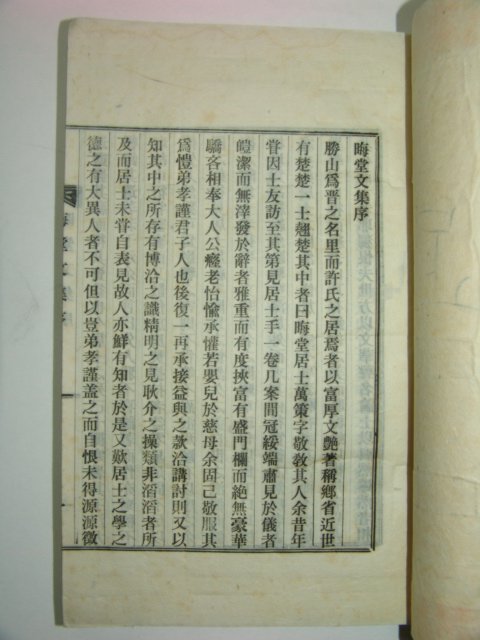 晦堂文集序
勝山爲晋之名里而許氏之居焉者以富厚文艶著稱鄉省近世
有楚楚一士翹楚其中者曰晦堂居士萬策字敬敎其人余昔年
甞因士友訪至其第見居士手一卷几案間冠綏端肅見於儀者
皚潔而無滓發於辭者雅重而有度挾富有盛門欄而絶無豪華
驕客相奉大人公癡老怡愉承懽若嬰兒於慈母余固已敬服其
爲愷弟孝謹君子人也後復一再承接益與之款洽講討則又以
知其中之所存有博洽之識精明之見耿介之操類非滔滔者所
及而居士未甞自表見故人亦鮮有知者於是又歎居士之學之
德之有大異人者不可但以豈弟孝謹盖之而自恨未得源源徵
晦堂文集序